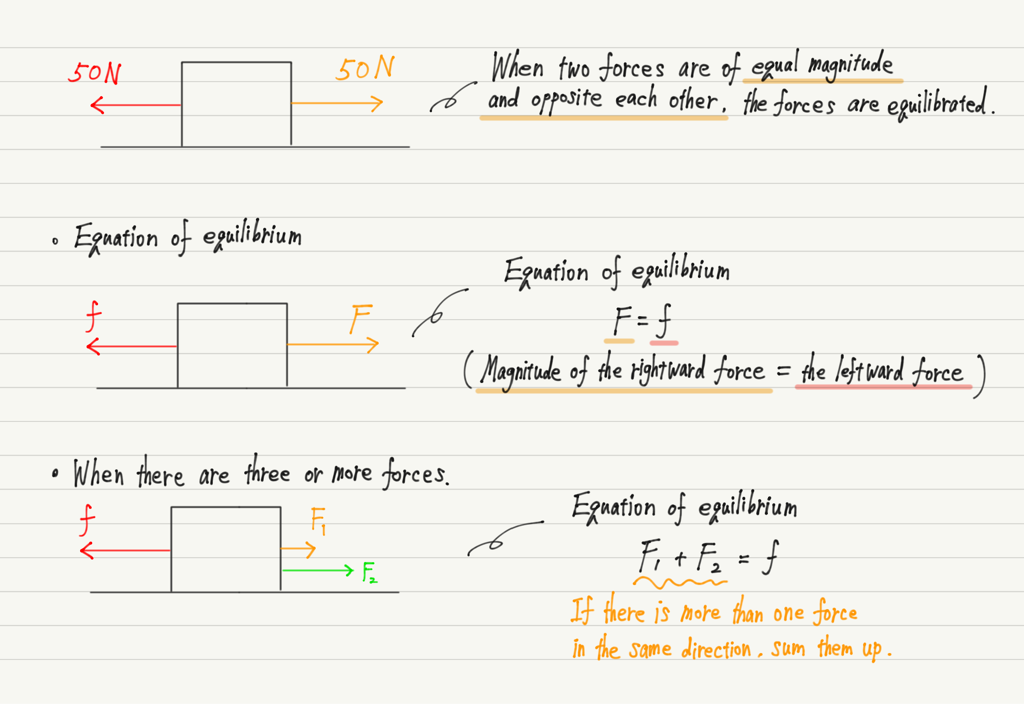 50N
50N
When two forces are of equal magnitude
and opposite each other, the forces are equilibrated.
• Equation of equilibrium
Equation of equilibrium
f
F
F = f
(Magnitude of the rightward force = the leftward force)
• When there are three or more forces.
Equation of equilibrium
f
F₁
F₂
F₁ + F₂ = f
If there is more than one force
in the same direction, sum them up.